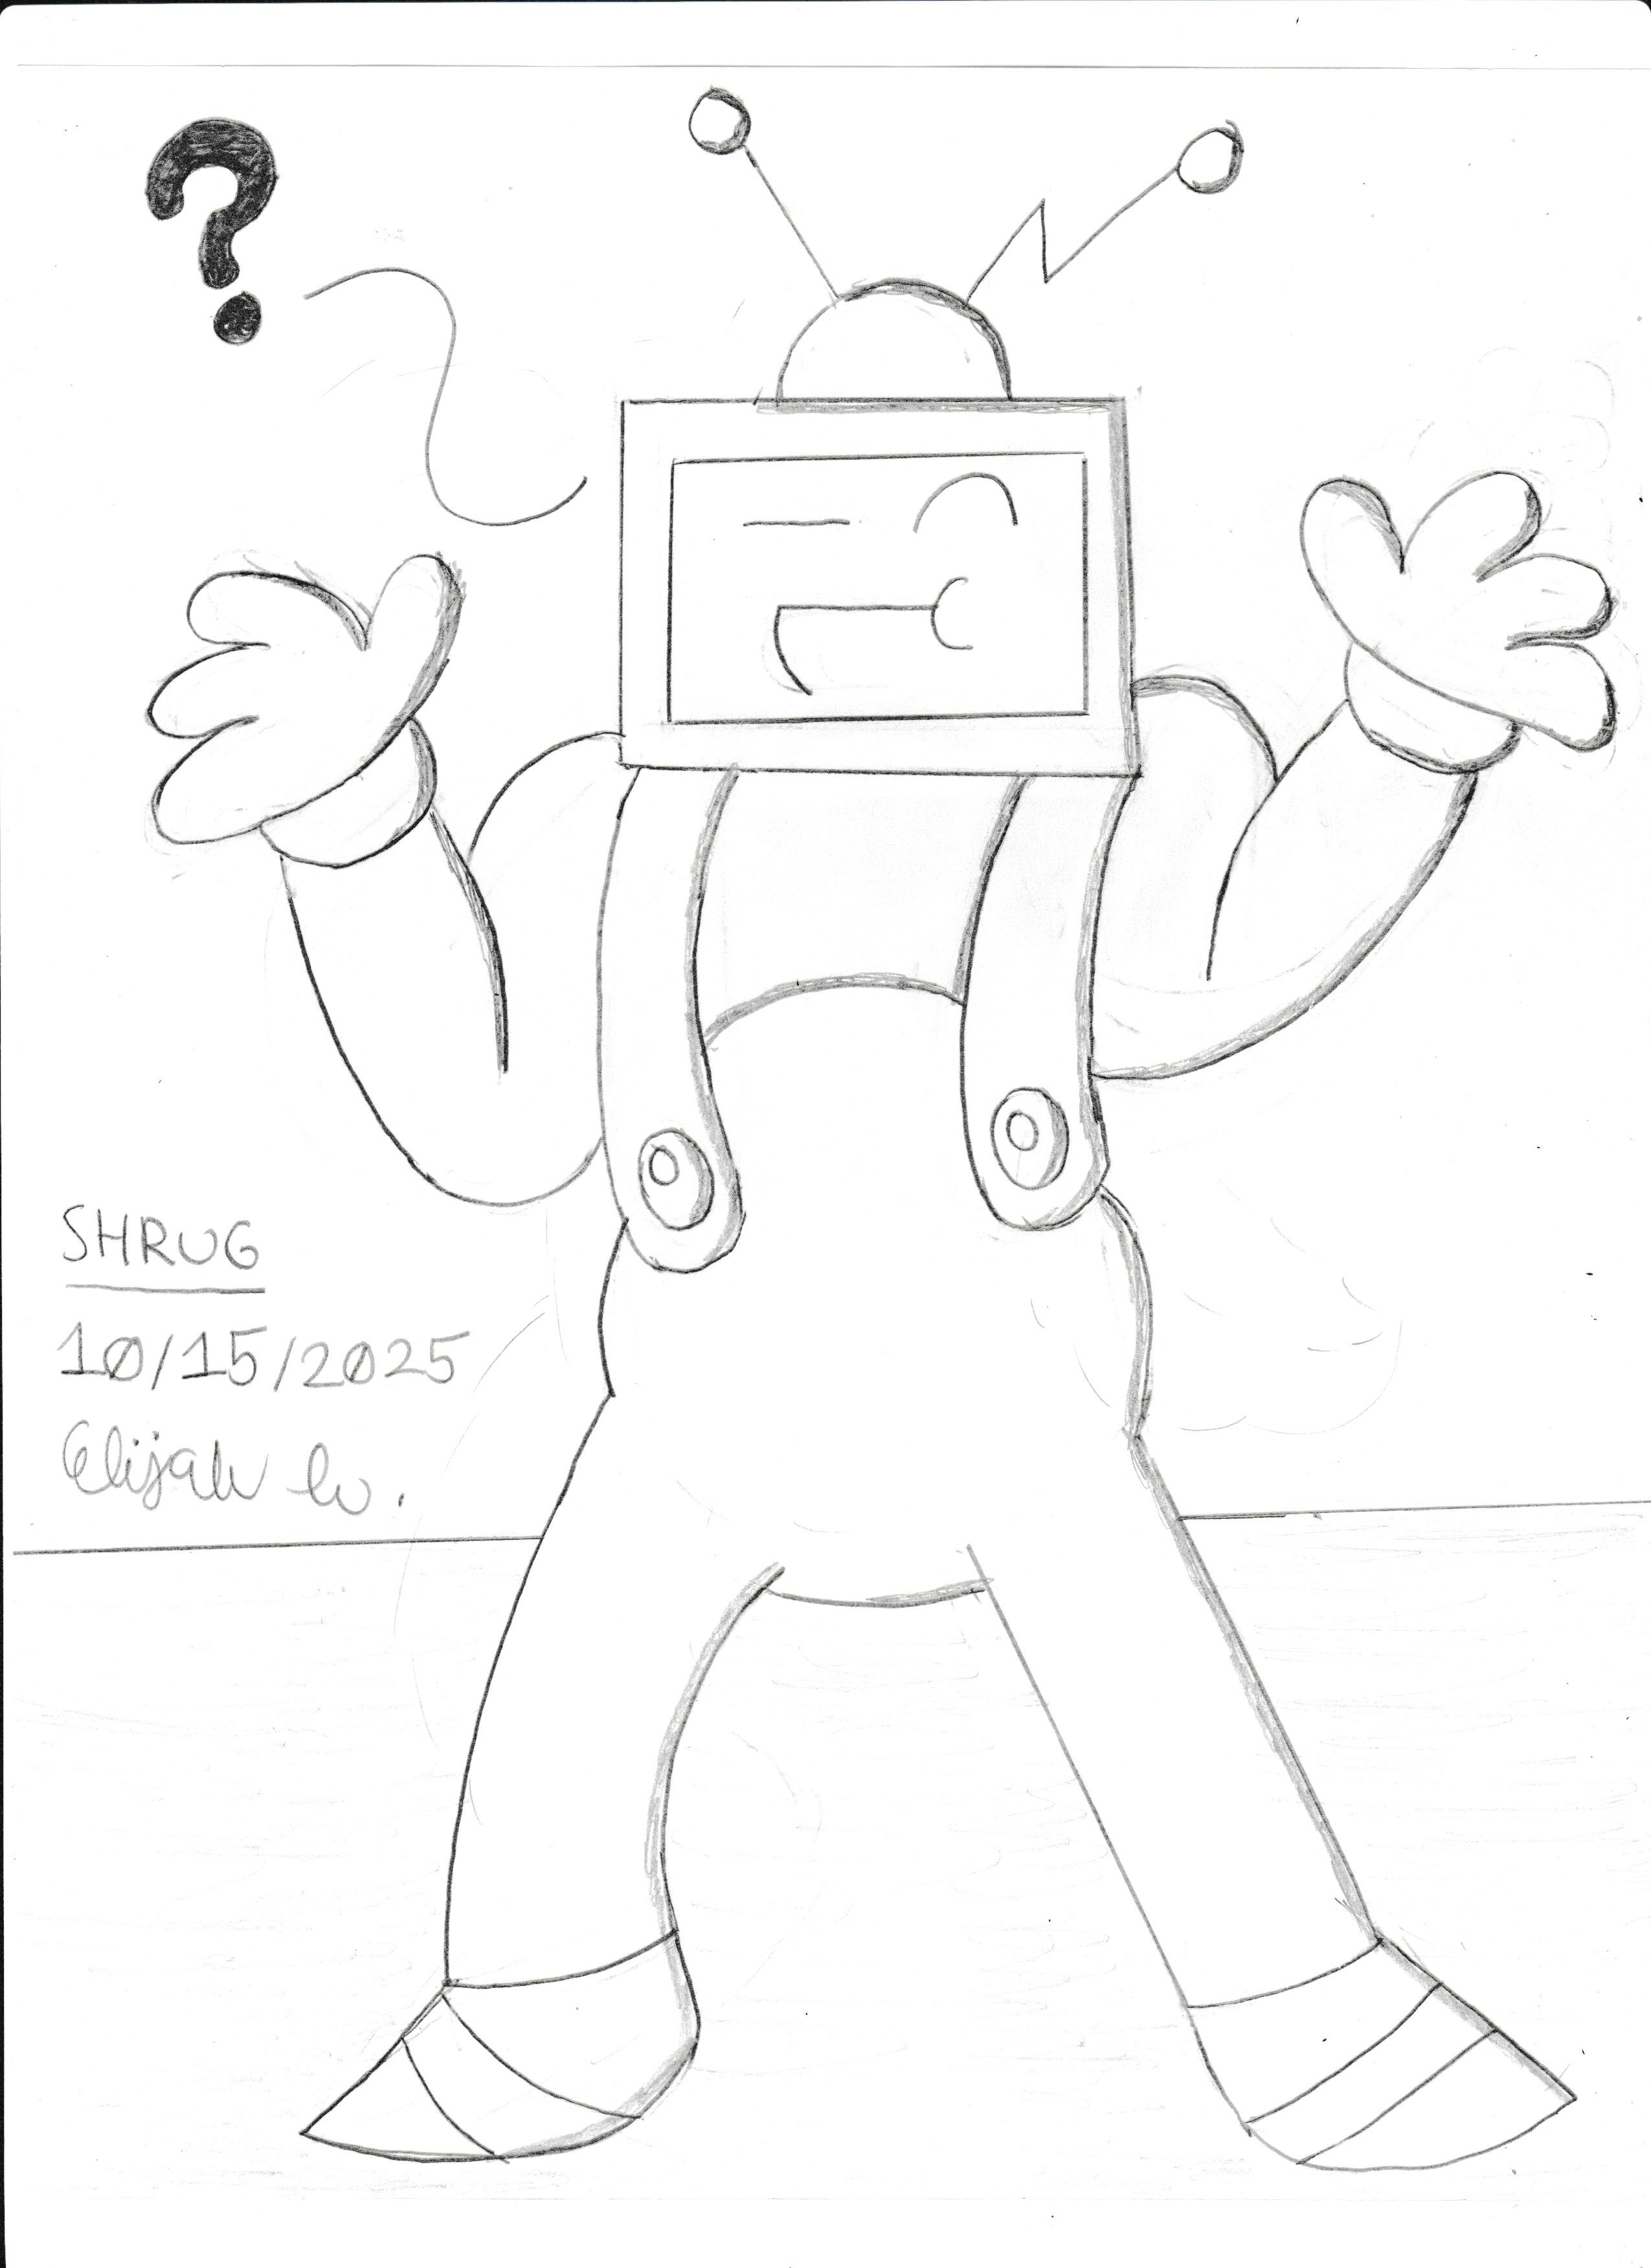 ?
SHRUG
10/15/2025
Elijah W.